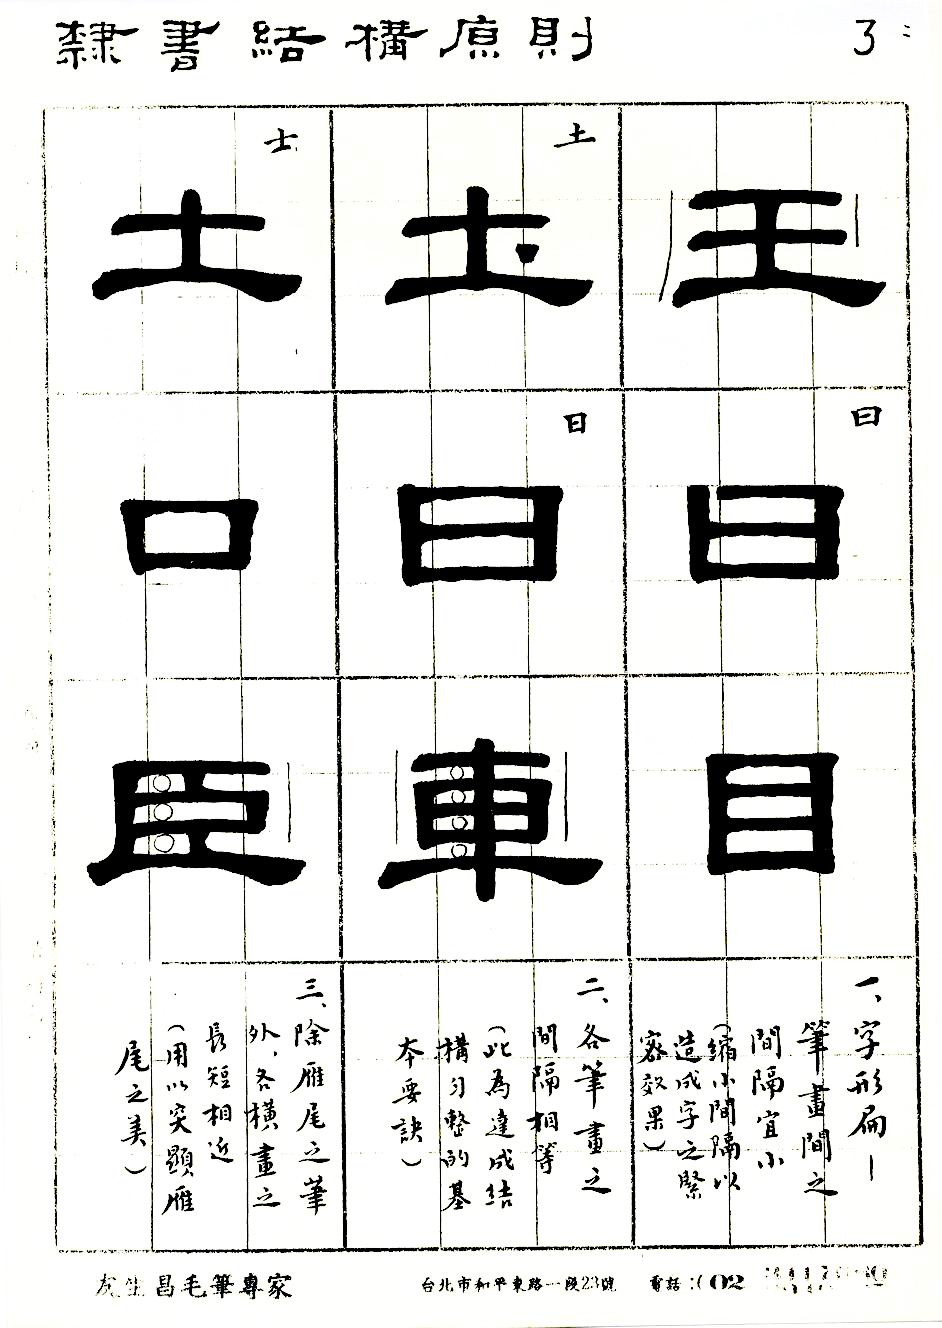 隸書結構原則
3
王
土
土
士
士
曰
曰
日
日
口
目
車
臣
一、字形扁—
筆畫間之
間隔宜小
(縮小間隔以
造成字之緊
密效果)
二、各筆畫之
間隔相等
(此為達成結
構勻整的基
本要訣)
三、除雁尾之筆
外,各橫畫之
長短相近
(用以突顯雁
尾之美)
友生昌毛筆專家
台北市和平東路一段23號
電話:(02